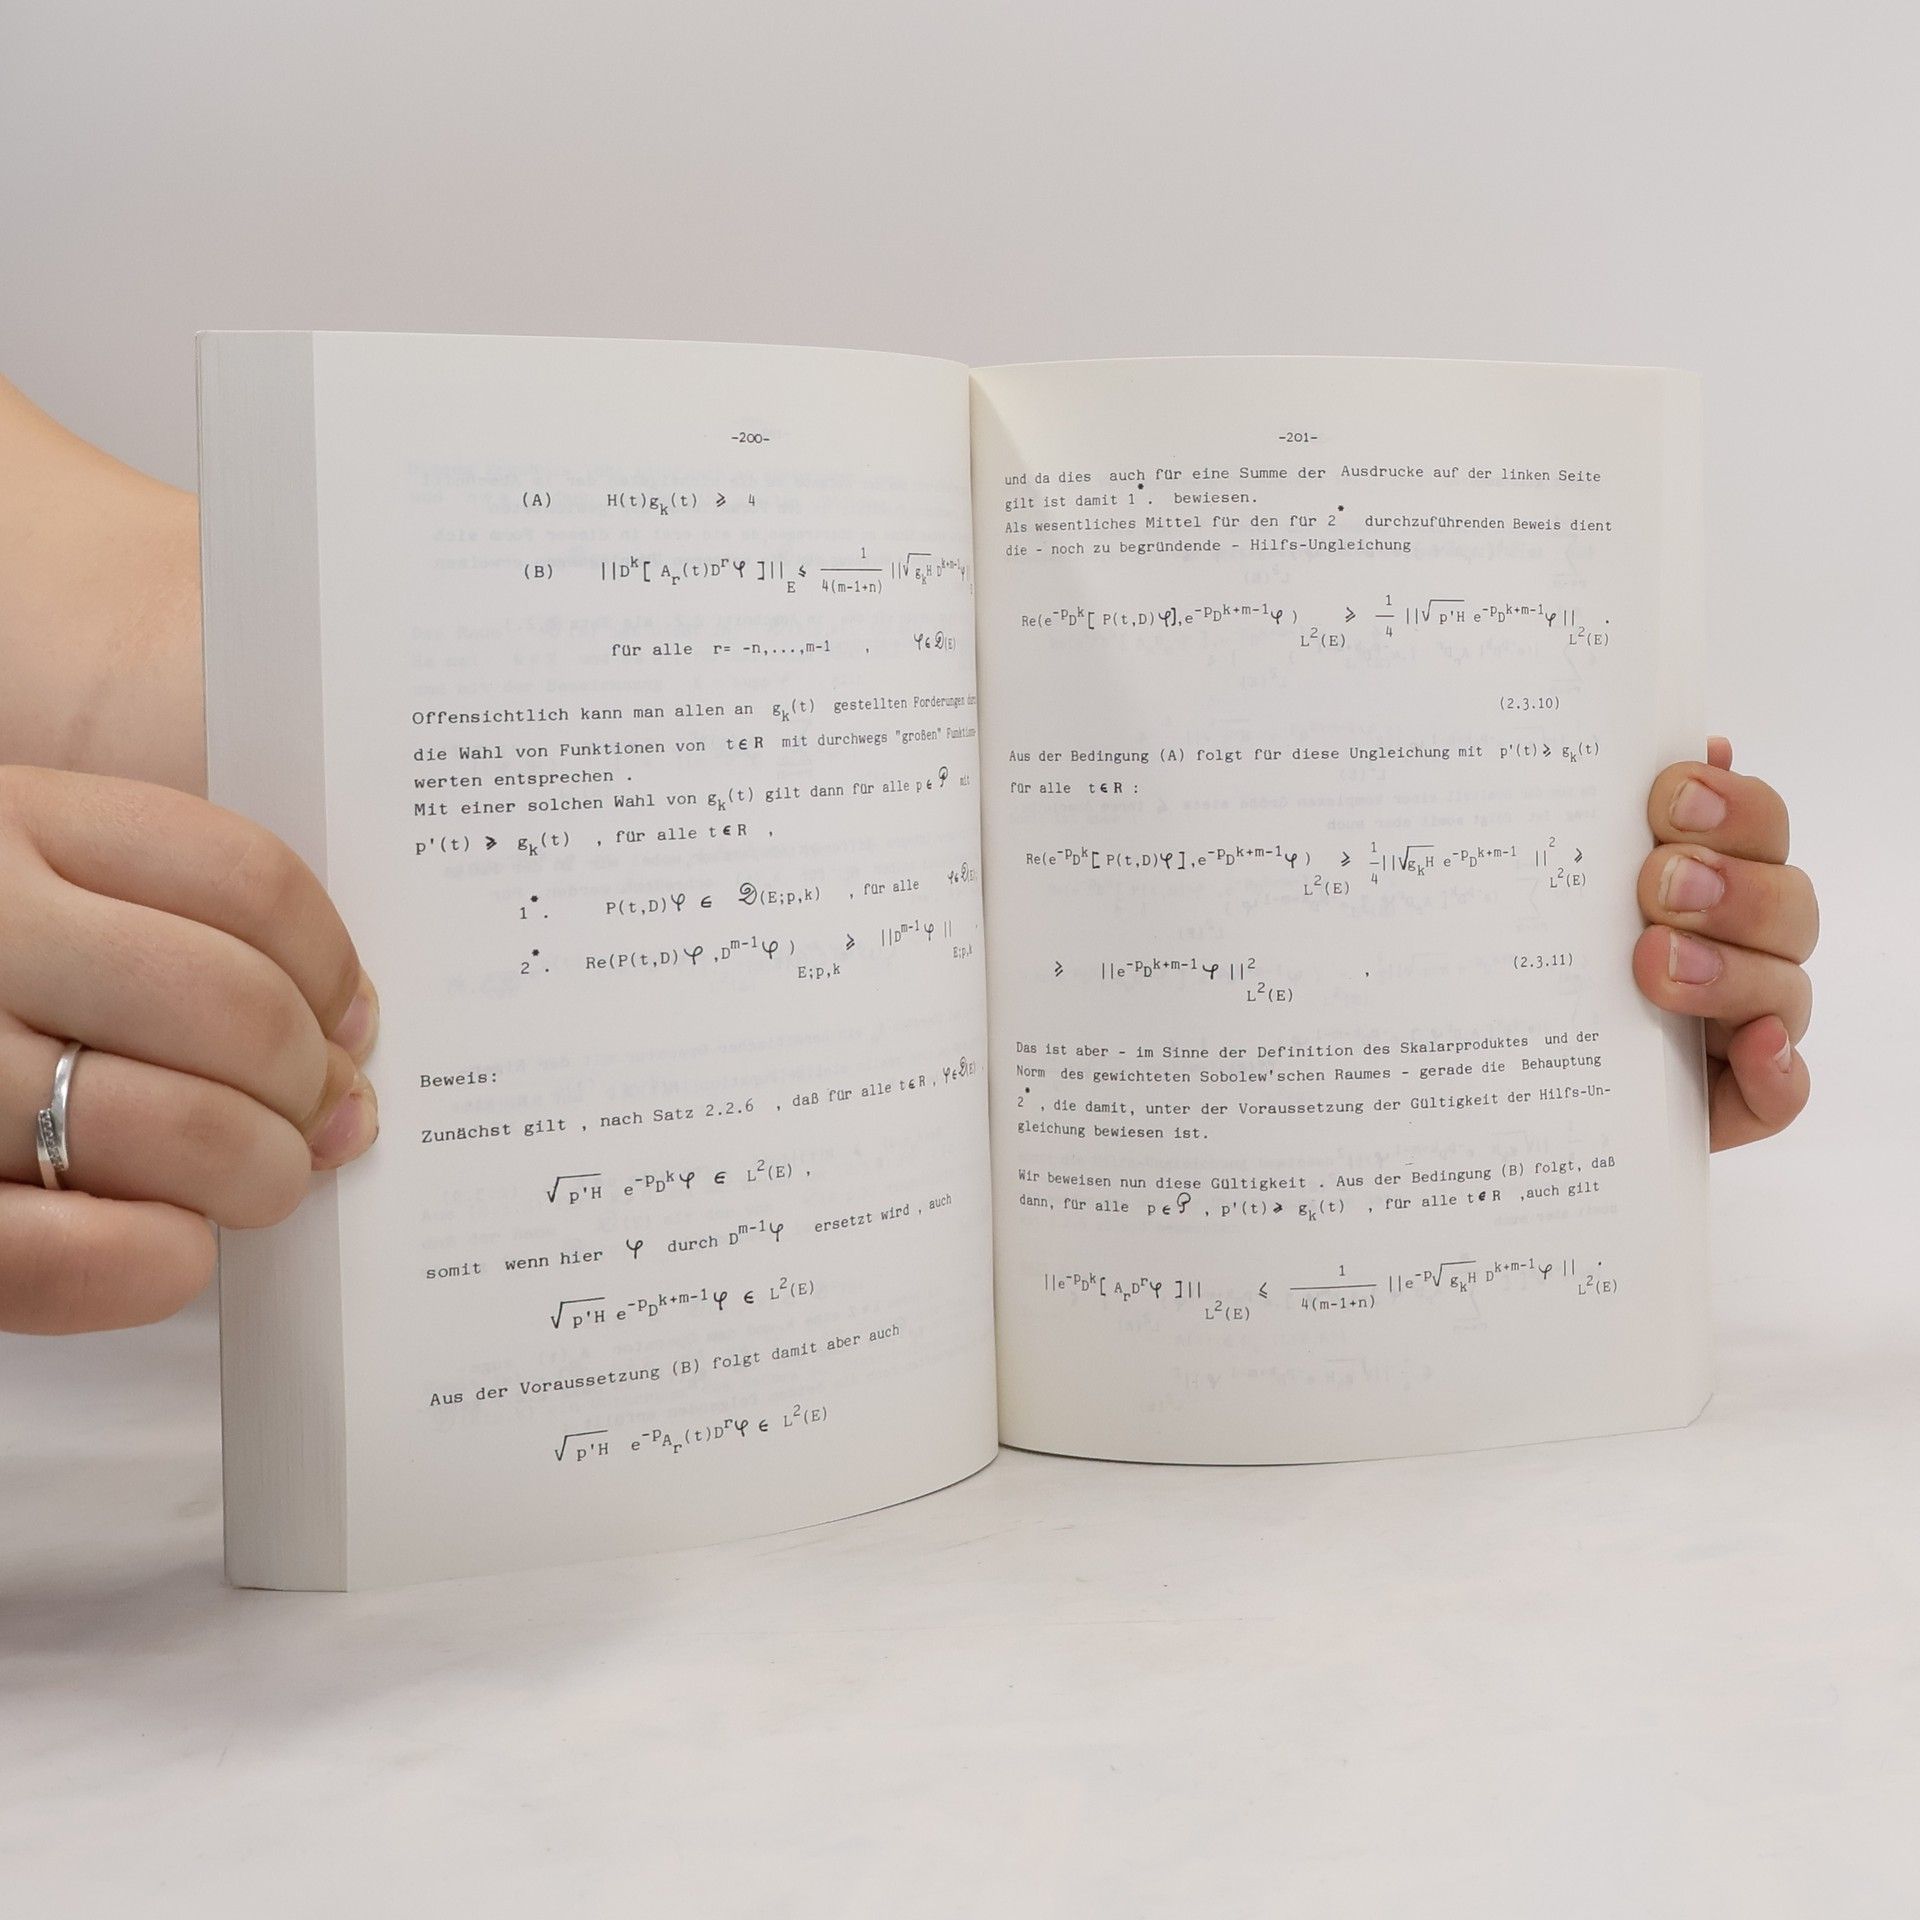 -200-
(A) H(t)g_k(t) ⩾ 4
(B) ||D^k[ A_r(t)D^rφ ]||_E ⩽ 1/4(m-1+n) ||√g_kH D^k+m-1φ||
für alle r= -n,...,m-1 , φ∈𝒟(E)
Offensichtlich kann man allen an g_k(t) gestellten Forderungen durch
die Wahl von Funktionen von t∈R mit durchwegs "großen" Funktions-
werten entsprechen .
Mit einer solchen Wahl von g_k(t) gilt dann für alle p∈𝒫 mit
p'(t) ⩾ g_k(t) , für alle t∈R ,
1*. P(t,D)φ ∈ 𝒟(E;p,k) , für alle φ∈𝒟(E)
2*. Re(P(t,D)φ ,D^m-1φ )_E;p,k ⩾ ||D^m-1φ ||_E;p,k
Beweis:
Zunächst gilt , nach Satz 2.2.6 , daß für alle t∈R , φ∈𝒟(E) ,
√p'H e^-pD^kφ ∈ L^2(E) ,
somit wenn hier φ durch D^m-1φ ersetzt wird , auch
√p'H e^-pD^k+m-1φ ∈ L^2(E)
Aus der Voraussetzung (B) folgt damit aber auch
√p'H e^-pA_r(t)D^rφ ∈ L^2(E)
-201-
und da dies auch für eine Summe der Ausdrucke auf der linken Seite
gilt ist damit 1*. bewiesen.
Als wesentliches Mittel für den für 2* durchzuführenden Beweis dient
die - noch zu begründende - Hilfs-Ungleichung
Re(e^-pD^k[ P(t,D)φ],e^-pD^k+m-1φ )_L^2(E) ⩾ 1/4 ||√p'H e^-pD^k+m-1φ||_L^2(E) .
(2.3.10)
Aus der Bedingung (A) folgt für diese Ungleichung mit p'(t)⩾ g_k(t)
für alle t∈R :
Re(e^-pD^k[ P(t,D)φ],e^-pD^k+m-1φ )_L^2(E) ⩾ 1/4||√g_kH e^-pD^k+m-1 ||^2_L^2(E) ⩾
⩾ ||e^-pD^k+m-1φ ||^2_L^2(E) , (2.3.11)
Das ist aber - im Sinne der Definition des Skalarproduktes und der
Norm des gewichteten Sobolew'schen Raumes - gerade die Behauptung
2* , die damit, unter der Voraussetzung der Gültigkeit der Hilfs-Un-
gleichung bewiesen ist.
Wir beweisen nun diese Gültigkeit . Aus der Bedingung (B) folgt, daß
dann, für alle p∈𝒫 , p'(t)⩾ g_k(t) , für alle t∈R ,auch gilt
||e^-pD^k[ A_rD^rφ ]||_L^2(E) ⩽ 1/4(m-1+n) ||e^-p√g_kH D^k+m-1φ ||_L^2(E) .